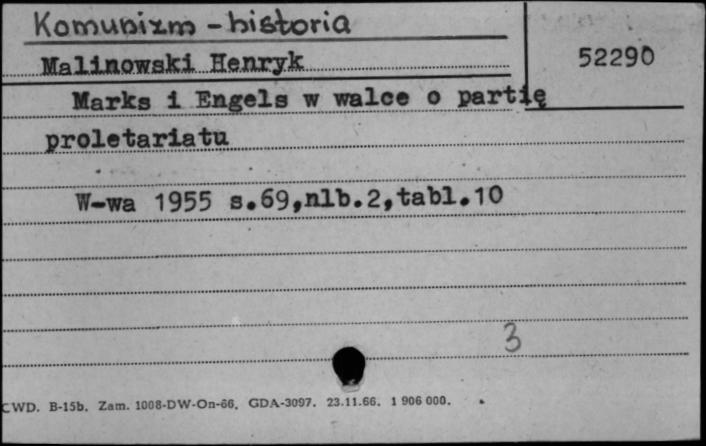 Komunizm - historia
Malinowski Henryk
52290
Marks i Engels w walce o partię
proletariatu
W-wa 1955 s.69,nlb.2,tabl.10
3
CWD. B-15b. Zam. 1008-DW-On-66. GDA-3097. 23.11.66. 1 906 000.